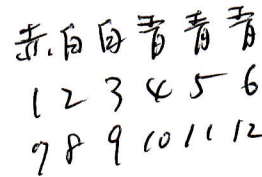 赤白白青青青
1 2 3 4 5 6
7 8 9 10 11 12